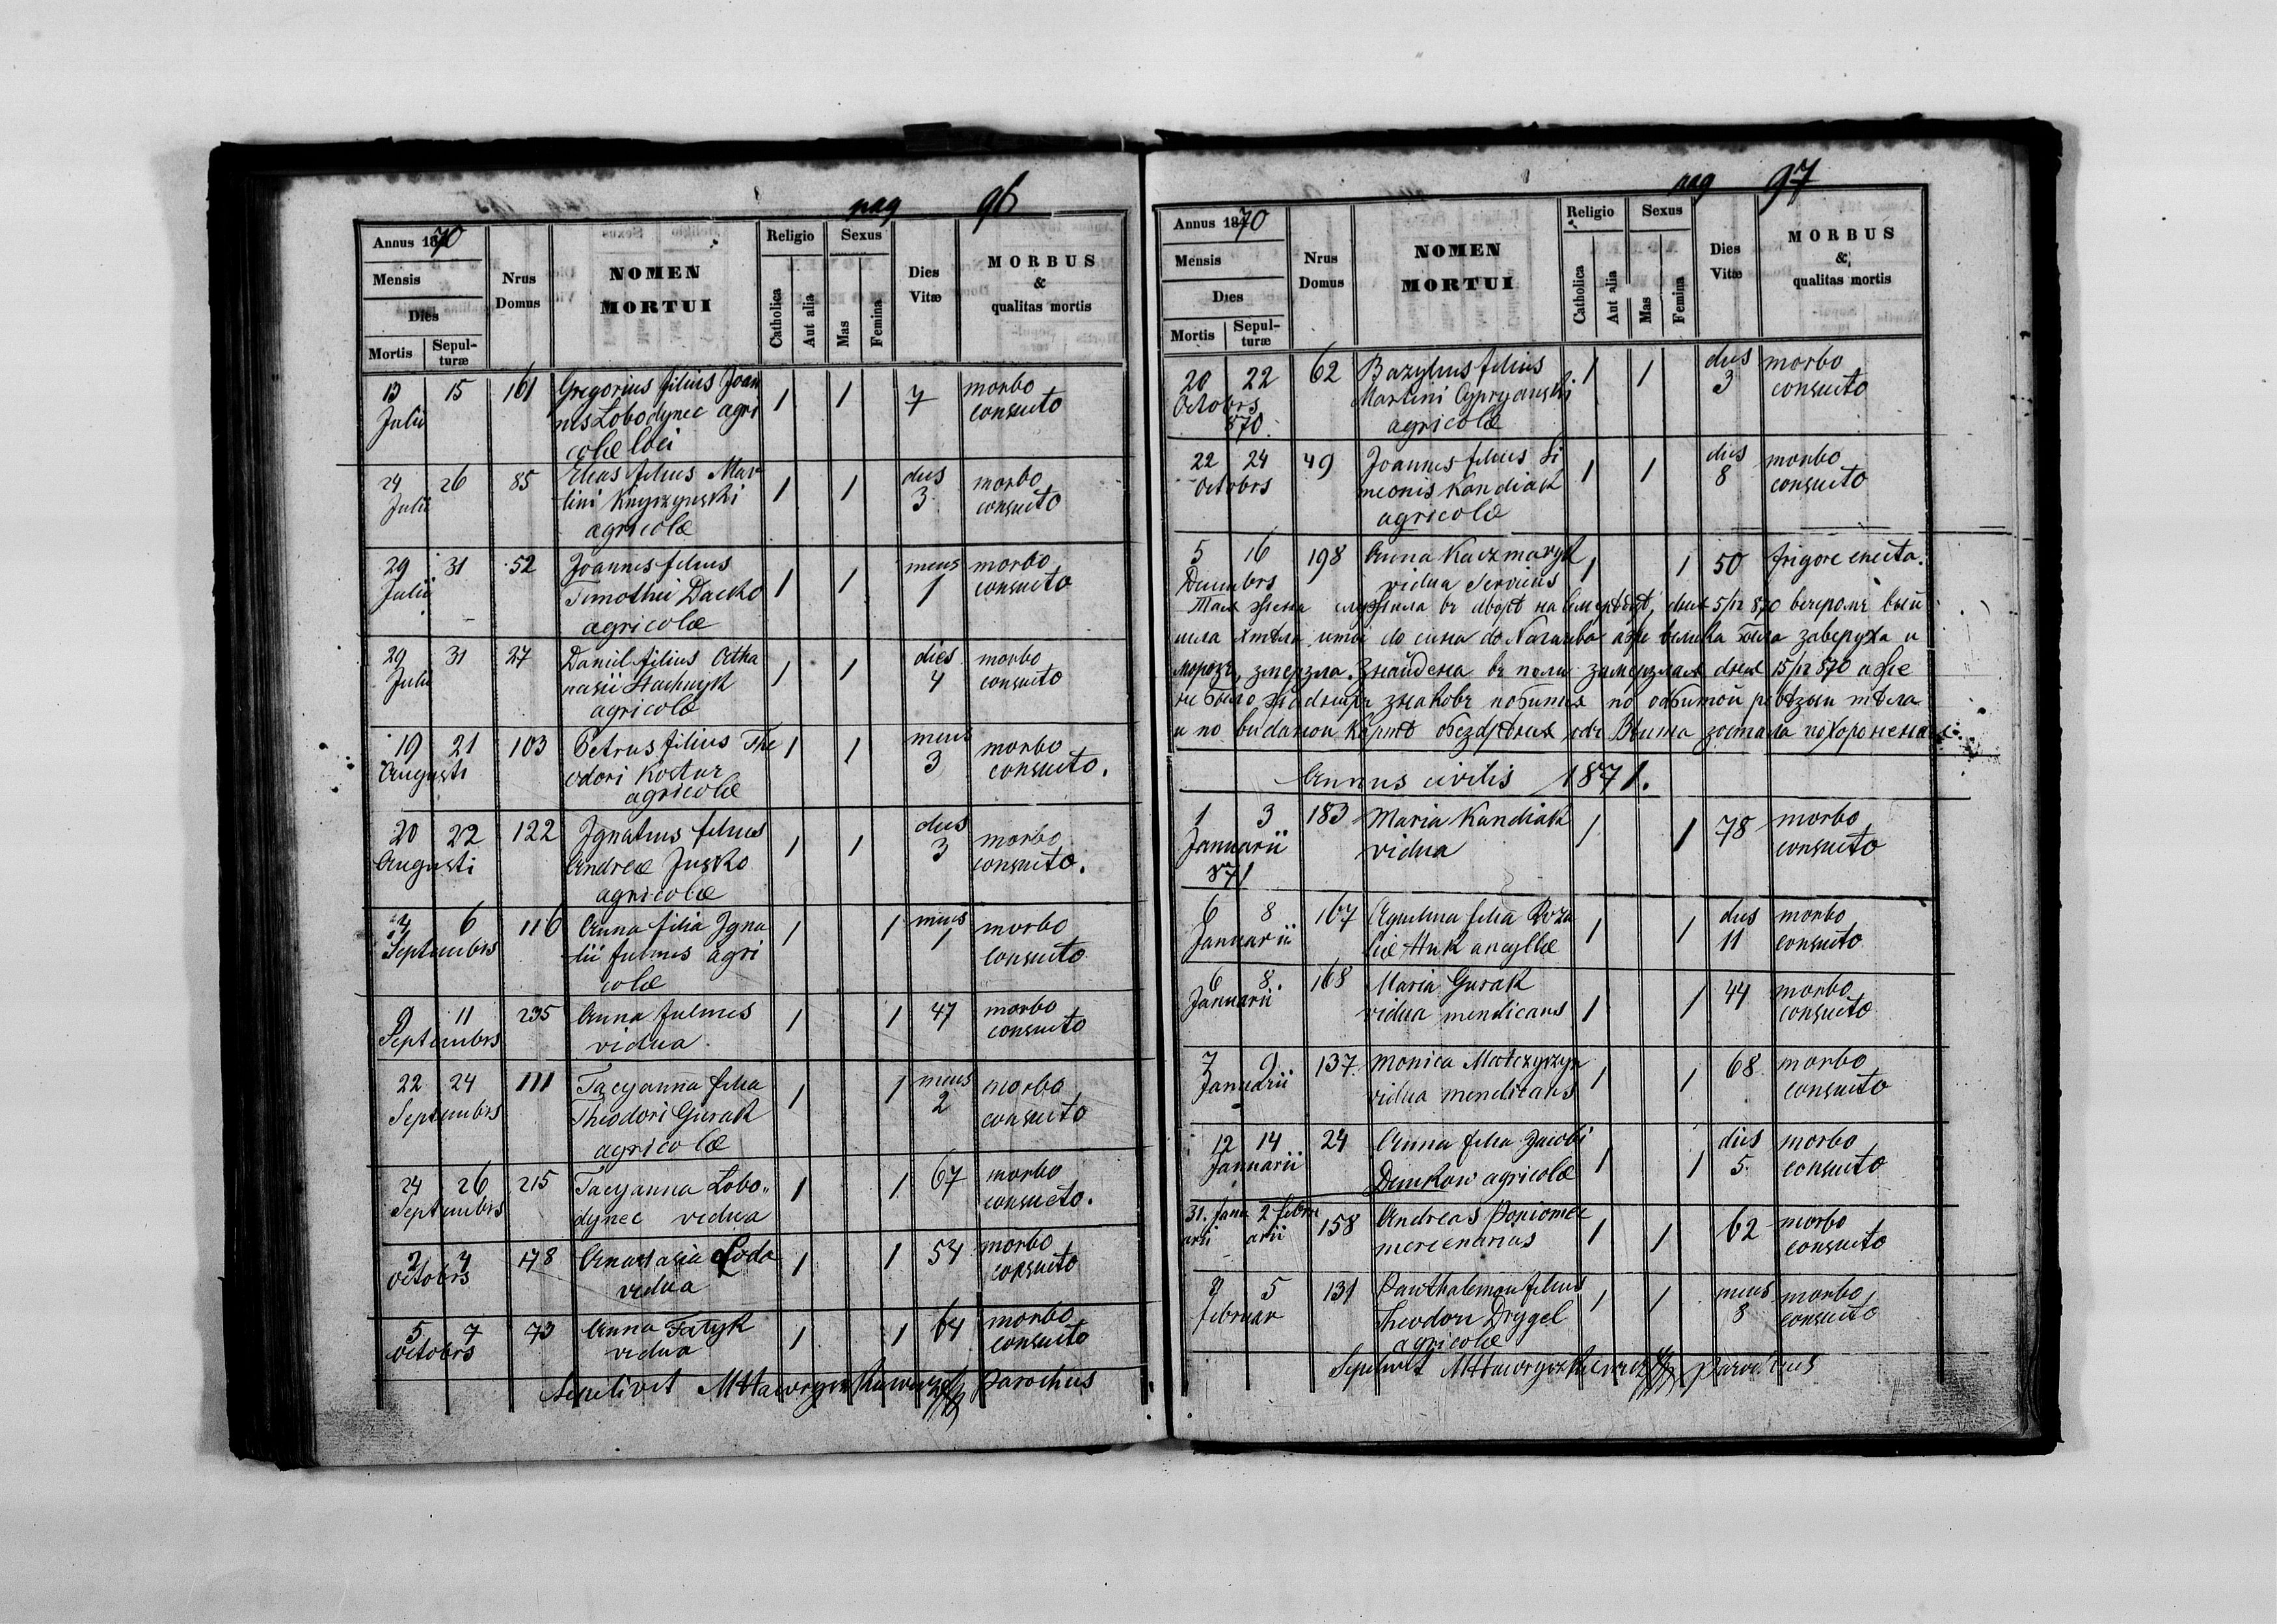 pag 96
Annus 1870
Mensis
Dies
Mortis
Sepulturæ
Nrus Domus
NOMEN MORTUI
Religio
Catholica
Aut alia
Sexus
Mas
Femina
Dies Vitæ
MORBUS & qualitas mortis
13 15 161 Gregorius filius Joan 1 1 7 morbo
Julii nis Lobodynec agri consueto
colæ loci
24 26 85 Elias filius Mar 1 1 dies morbo
Julii tini Knyszynski 3 consueto
agricolæ
29 31 52 Joannes filius 1 1 mens morbo
Julii Timothei Dacko 1 consueto
agricolæ
29 31 27 Daniel filius Atha 1 1 dies morbo
Julii nasii Stachnyk 4 consueto
agricolæ
19 21 103 Petrus filius The 1 1 mens morbo
Augusti odori Kostur 3 consueto.
agricolæ
20 22 122 Ignatius filius 1 1 dies morbo
Augusti Andreæ Jusko 3 consueto.
agricolæ
4 6 116 Anna filia Igna 1 1 mens morbo
Septembrs tii fulmes agri 1 consueto
colæ
9 11 235 Anna fulmes 1 1 47 morbo
Septembrs vidua consueto
22 24 111 Tacyanna filia 1 1 mens morbo
Septembrs Theodori Gurak 2 consueto
agricolæ
24 26 215 Tacyanna Lobo 1 1 67 morbo
Septembrs dynec vidua consueto.
2 4 178 Anastasia Loda 1 1 54 morbo
Octobrs vidua consueto
5 7 73 Anna Fatyk 1 1 64 morbo
Octobrs vidua consueto
Sepelivit Parochus
pag 97
Annus 1870
Mensis
Dies
Mortis
Sepulturæ
Nrus Domus
NOMEN MORTUI
Religio
Catholica
Aut alia
Sexus
Mas
Femina
Dies Vitæ
MORBUS & qualitas mortis
20 22 62 Bazylius filius 1 1 dies morbo
Octobrs Martini Cypryanski 3 consueto
870. agricolæ
22 24 49 Joannes filius Si 1 1 dies morbo
Octobrs meonis Kandiak 8 consueto
agricolæ
5 16 198 Anna Kaczmaryk 1 1 50 frigore enecta.
Decembrs vidua serviens
Тая жена служила въ дня 5/12 870 вечеромъ вый
шла хтѣла ити до сина do аже велика была заверуха и
морозъ, змерзла. Знайдена въ поли замерзлая дня 15/12 870 а же
не было жаднихъ знаковъ побитя по отбитой ревѣзіи тѣла
и по виданои картѣ зостала похоронена.
Annus civilis 1871.
1 3 183 Maria Kandiak 1 1 78 morbo
Januarii vidua consueto
871
6 8 167 filia Roza 1 1 dies morbo
Januarii liæ Huk ancyllæ 11 consueto
6 8 168 Maria Gurak 1 1 44 morbo
Januarii vidua mendicans consueto
7 9 137 Monica Matczyszyn 1 1 68 morbo
Januarii vidua mendicans consueto
12 14 24 Anna filia Jacobi 1 1 dies morbo
Januarii Demkow agricolæ 5 consueto
31. Janu 2 Febru 158 Andreas Poniomec 1 1 62 morbo
arii arii mercenarius consueto
3 5 131 Panthalemon filius 1 1 mens morbo
Februar Theodori Drygel 8 consueto
agricolæ
Sepelivit Parochus